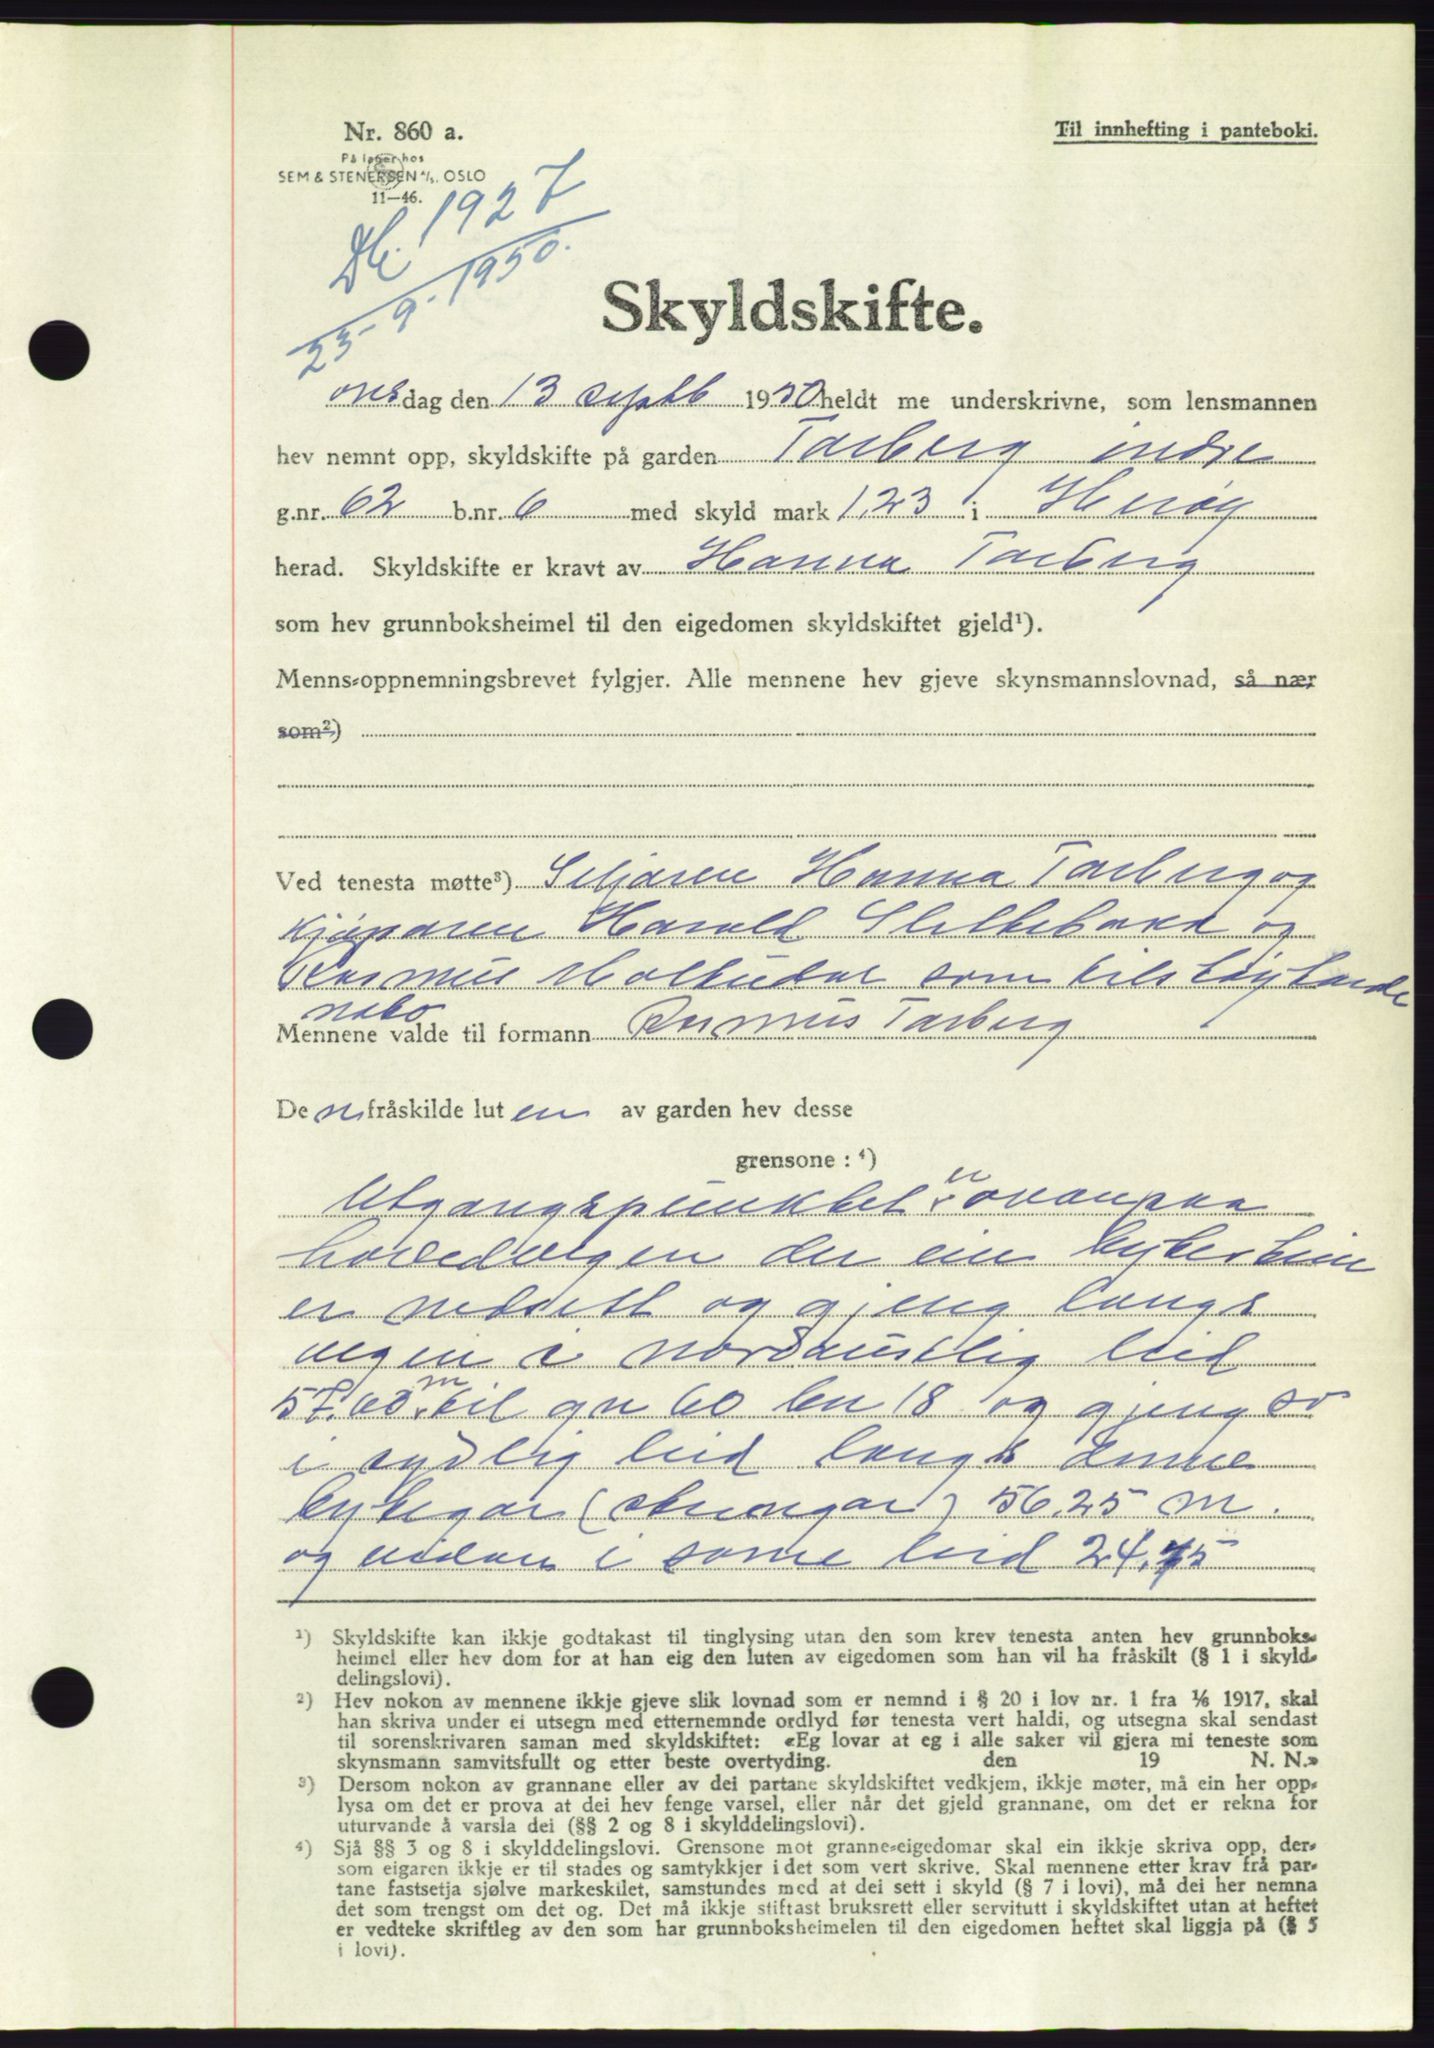 Nr. 860 a.
Til innhefting i panteboki.
På lager hos
SEM & STENERSEN A/S. OSLO
11—46.
Db. 1927
23-9-1950.
Skyldskifte.
onsdag den 13 septb 1950 heldt me underskrivne, som lensmannen
hev nemnt opp, skyldskifte på garden Tarberg indre
g.nr. 62 b.nr. 6 med skyld mark 1,23 i Herøy
herad. Skyldskifte er kravt av Hanna Tarberg
som hev grunnboksheimel til den eigedomen skyldskiftet gjeld¹).
Menns-oppnemningsbrevet fylgjer. Alle mennene hev gjeve skynsmannslovnad, så nær
som²)
Ved tenesta møtte³) Seljaren Hanna Tarberg og
Kjøparen Harald Slettebakk og
Rasmus Moltudal som tilstøytande
nabo
Mennene valde til formann Rasmus Tarberg
De n fråskilde lut en av garden hev desse
grensone : ⁴)
Utgangspunktet er ovanpaa
hovedvegen der ein bytestein
er nedsett og gjeng langs
vegen i nordaustlig leid
57.60 m til gn 60 bn 18 og gjeng so
i sydlig leid langs denne
bytegar (steingar) 56,25 m.
og vidare i same leid 24,45
¹) Skyldskifte kan ikkje godtakast til tinglysing utan den som krev tenesta anten hev grunnboks-
heimel eller hev dom for at han eig den luten av eigedomen som han vil ha fråskilt (§ 1 i skyld-
delingslovi).
²) Hev nokon av mennene ikkje gjeve slik lovnad som er nemnd i § 20 i lov nr. 1 fra 1/6 1917, skal
han skriva under ei utsegn med etternemnde ordlyd før tenesta vert haldi, og utsegna skal sendast
til sorenskrivaren saman med skyldskiftet: «Eg lovar at eg i alle saker vil gjera mi teneste som
skynsmann samvitsfullt og etter beste overtyding. den 19 N. N.»
³) Dersom nokon av grannane eller av dei partane skyldskiftet vedkjem, ikkje møter, må ein her opp-
lysa om det er prova at dei hev fenge varsel, eller når det gjeld grannane, om det er rekna for
uturvande å varsla dei (§§ 2 og 8 i skylddelingslovi).
⁴) Sjå §§ 3 og 8 i skylddelingslovi. Grensone mot granne-eigedomar skal ein ikkje skriva opp, der-
som eigaren ikkje er til stades og samtykkjer i det som vert skrive. Skal mennene etter krav frå par-
tane fastsetja sjølve markeskilet, samstundes med at dei sett i skyld (§ 7 i lovi), må dei her nemna
det som trengst om det og. Det må ikkje stiftast bruksrett eller servitutt i skyldskiftet utan at heftet
er vedteke skriftleg av den som har grunnboksheimelen til den eigedomen heftet skal liggja på (§ 5
i lovi).